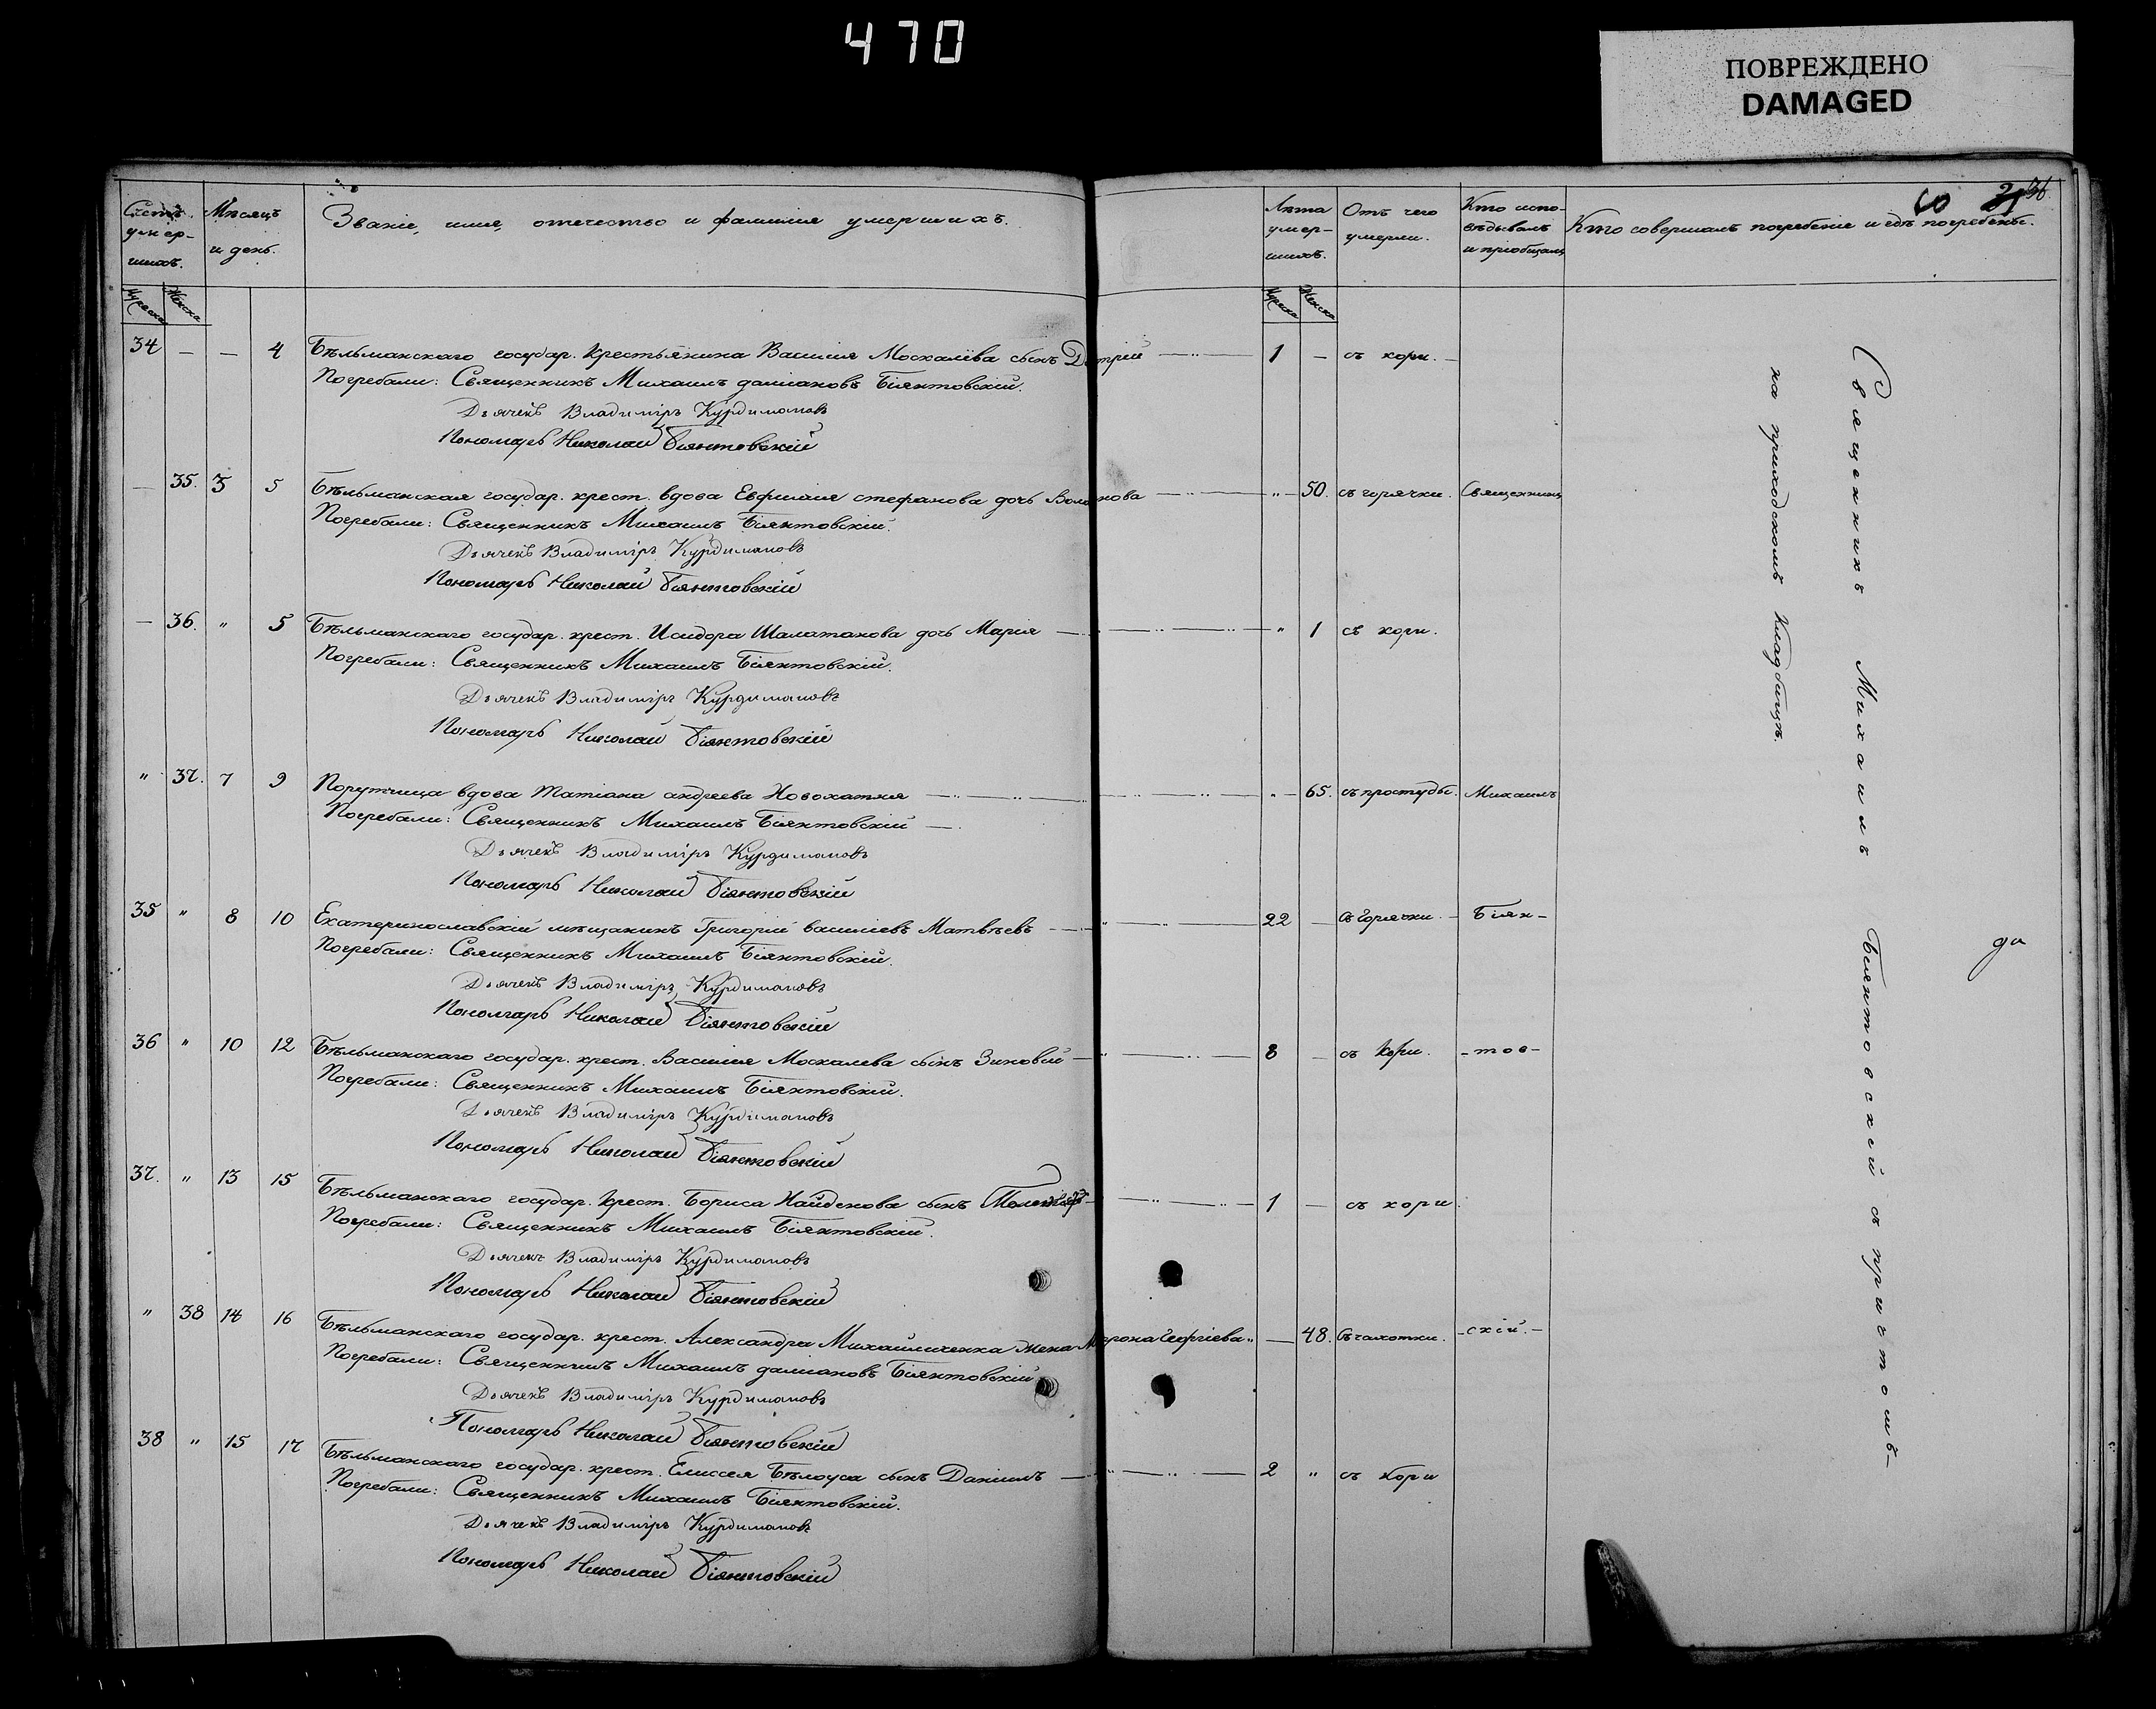 470
ПОВРЕЖДЕНО
DAMAGED
Счетъ умер-шихъ. Мѣсяцъ и день. Званіе, имя, отечество и фамилія умершихъ. Лѣта умер-шихъ. Отъ чего умерли. Кто испо-вѣдывалъ и пріобщалъ Кто совершалъ погребеніе и гдѣ погребены.
Мужеска Женска Мужеска Женска
34 — — 4 Бѣльманскаго государ. крестьянина Василія Москалёва сынъ — 1 — съ кори. —
Погребали: Священникъ Михаилъ даміановъ Біянтовскій.
Дьячекъ Владиміръ Курдимановъ
Пономарь Николай Біянтовскій
— 35. 3 5 Бѣльманская государ. крест. вдова Евфимія стефанова дочь — „ — 50. съ горячки. Священникъ
Погребали: Священникъ Михаилъ Біянтовскій.
Дьячекъ Владиміръ Курдимановъ
Пономарь Николай Біянтовскій
— 36. „ 5 Бѣльманскаго государ. крест. Исидора Шалатанова дочь Марія — „ 1 съ кори.
Погребали: Священникъ Михаилъ Біянтовскій.
Дьячекъ Владиміръ Курдимановъ
Пономарь Николай Біянтовскій
„ 37. 7 9 Порутчица вдова Татіана андреева Новохатняя — „ — 65. съ простуды. Михаилъ
Погребали: Священникъ Михаилъ Біянтовскій —.
Дьячекъ Владиміръ Курдимановъ
Пономарь Николай Біянтовскій
35 „ 8 10 Екатеринославскій мѣщанинъ Григорій василіевъ Матвѣевъ — 22 — съ горячки. — Біян-
Погребали: Священникъ Михаилъ Біянтовскій.
Дьячекъ Владиміръ Курдимановъ
Пономарь Николай Біянтовскій
36 „ 10 12 Бѣльманскаго государ. крест. Василія Москалева сынъ Зиновій — 8 — съ кори. -тов-
Погребали: Священникъ Михаилъ Біянтовскій.
Дьячекъ Владиміръ Курдимановъ
Пономарь Николай Біянтовскій
37. „ 13 15 Бѣльманскаго государ. крест. Бориса Найденова сынъ — 1 — съ кори.
Погребали: Священникъ Михаилъ Біянтовскій.
Дьячекъ Владиміръ Курдимановъ
Пономарь Николай Біянтовскій
„ 38 14 16 Бѣльманскаго государ. крест. Александра Михайличенка жена Георгіева „ — 48. съ чахотки. -скій.-
Погребали: Священникъ Михаилъ даміановъ Біянтовскій
Дьячекъ Владиміръ Курдимановъ
Пономарь Николай Біянтовскій
38 „ 15 17 Бѣльманскаго государ. крест. Елиссея Бѣлоуса сынъ Даніилъ — 2 „ съ кори
Погребали: Священникъ Михаилъ Біянтовскій.
Дьячекъ Владиміръ Курдимановъ
Пономарь Николай Біянтовскій
Священникъ Михаилъ Біянтовскій съ причтомъ-
на приходскомъ кладбищѣ.